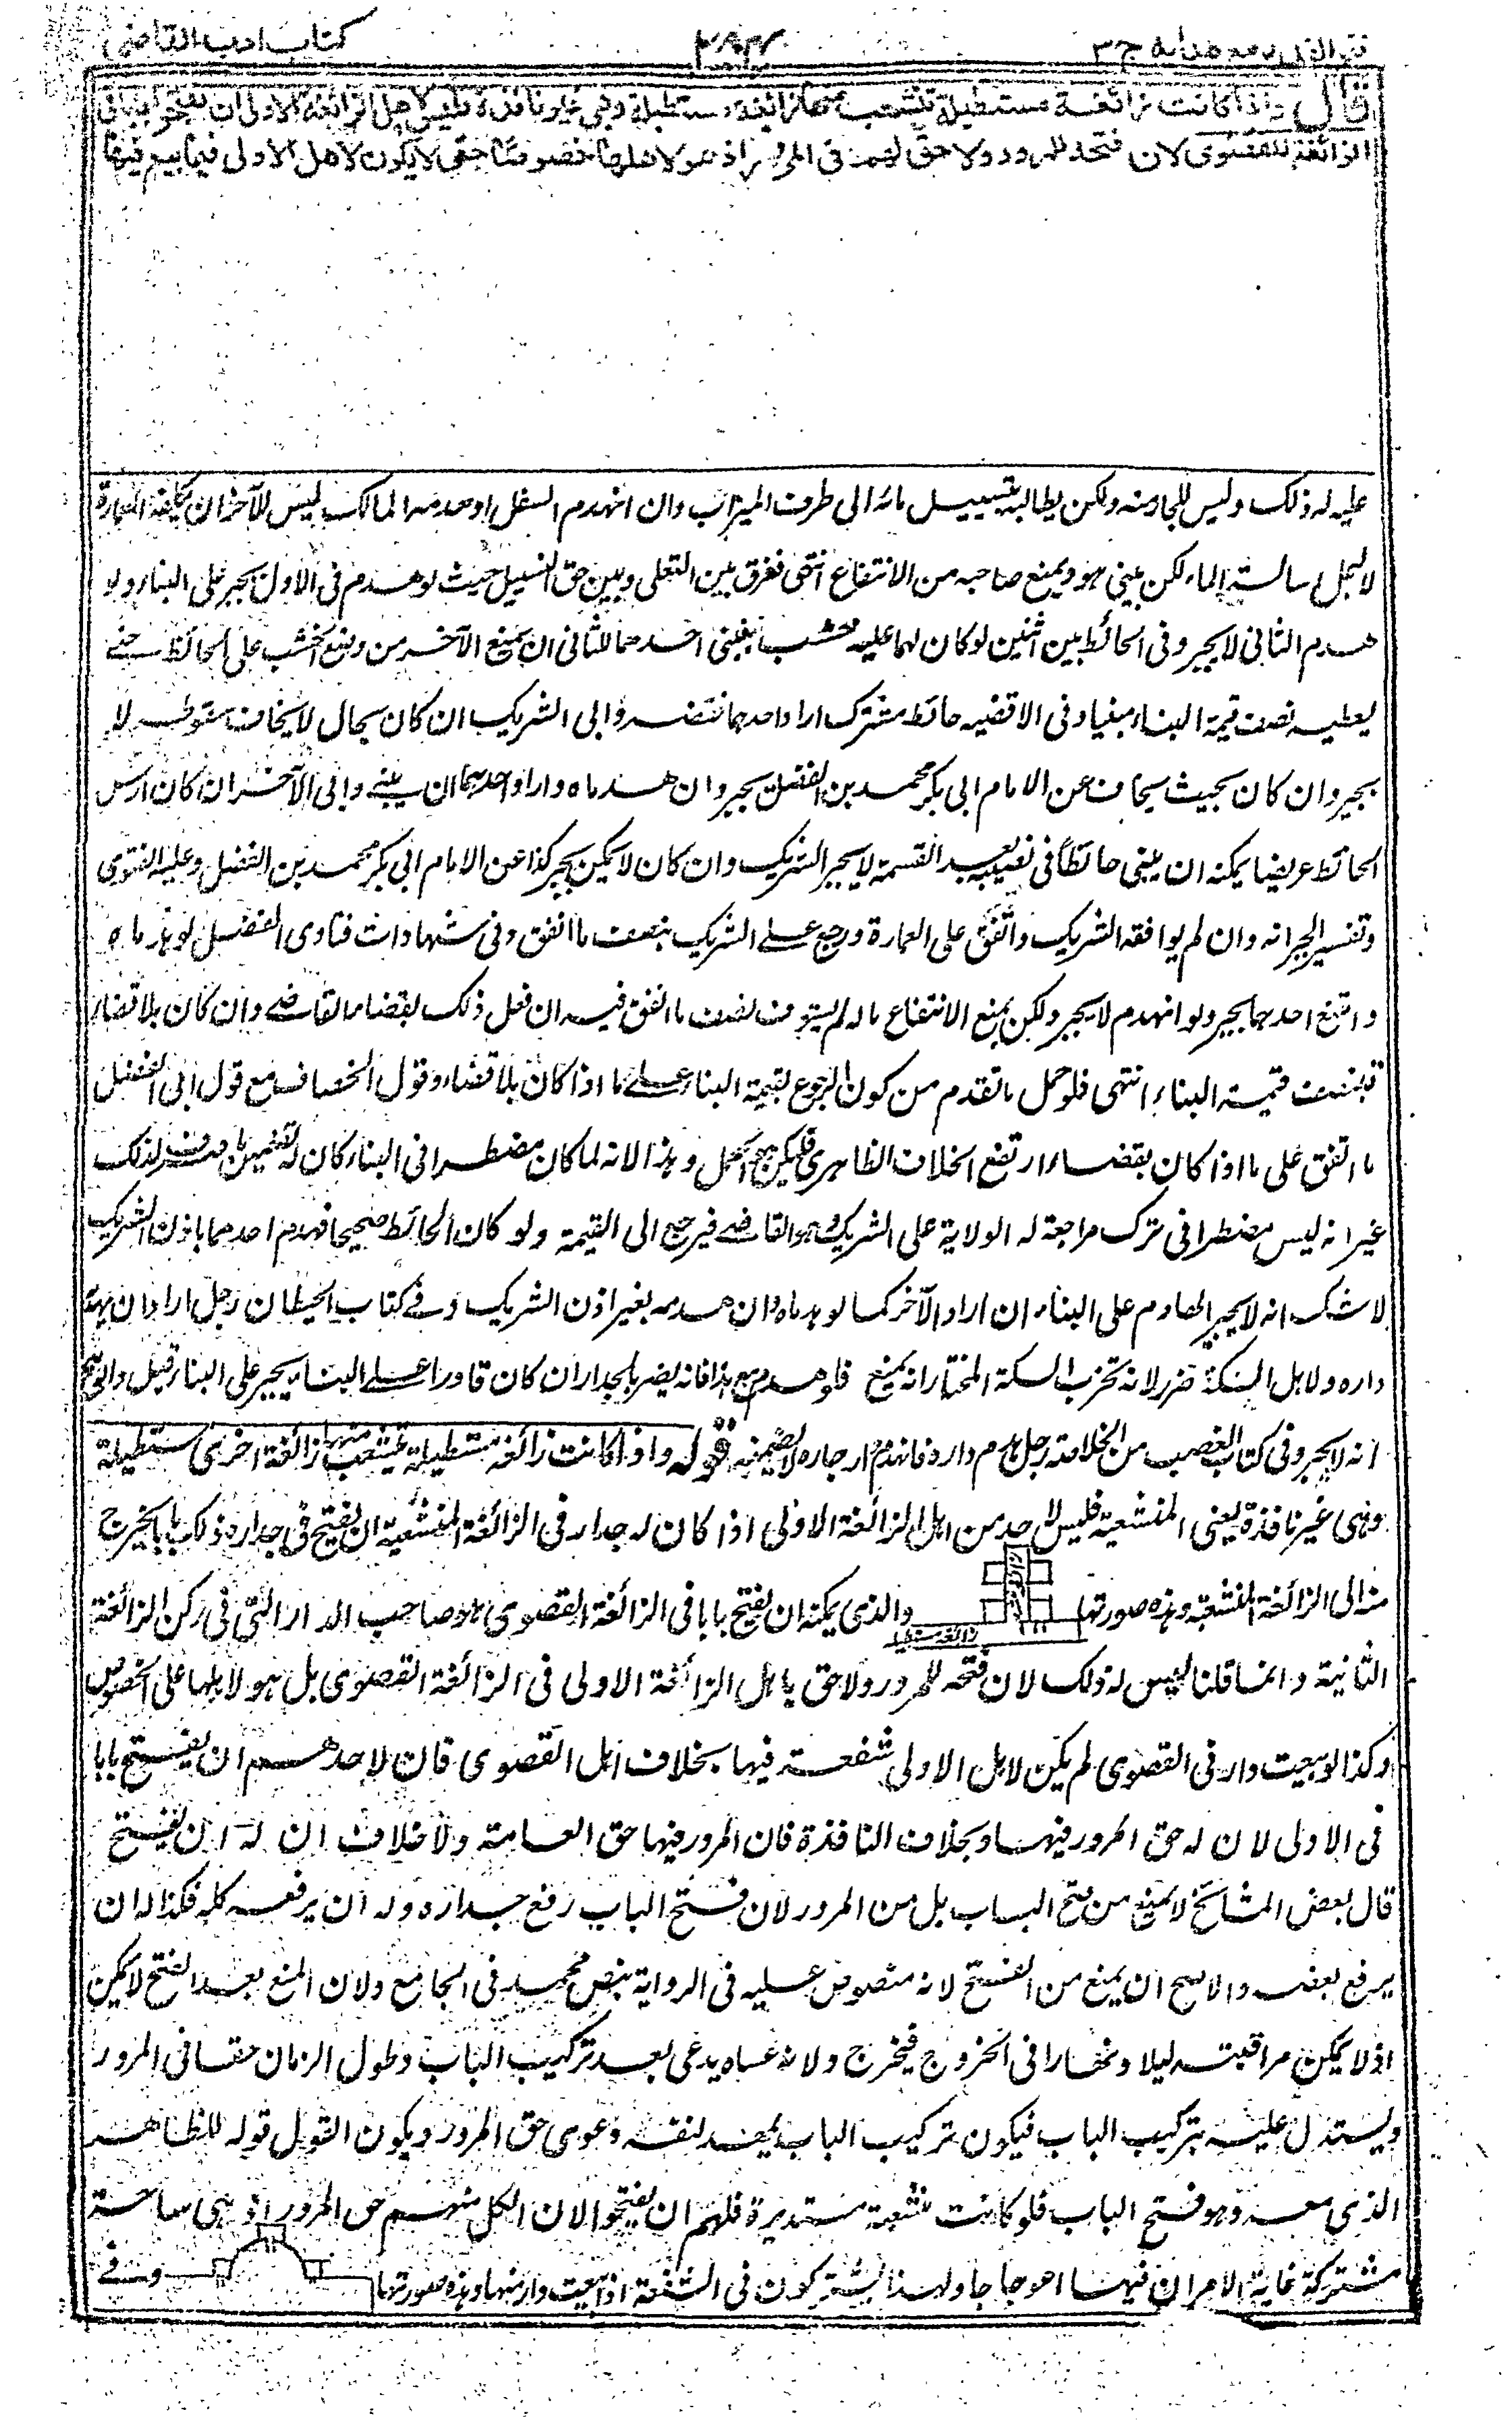 فتح القدير مع هداية ج ٣
٢٨٣
كتاب ادب القاضى
قال واذا كانت زائغة مستطيلة تنشعب منها زائغة مستطيلة وهى غير نافذة فليس لاهل الزائغة الاولى ان يفتحوا بابا فى
الزائغة القصوى لان فتحه للمرور ولا حق لهم فى المرور اذ هو لاهلها خصوصا حتى لا يكون لاهل الاولى فيما بيع فيها
عليه له ذلك وليس للجار منه ولكن يطالبه بتسييل مائه الى طرف الميزاب وان انهدم السفل او هدمه المالك ليس للآخر ان يكلفه العمارة
لاجل اسالة الماء لكن يبنى هو ويمنع صاحبه من الانتفاع انتهى ففرق بين التعلى وبين حق التسييل حيث لو هدم فى الاول يجبر على البناء ولو
هدم الثانى لا يجبر وفى الحائط بين اثنين لو كان لهما عليه خشب فبنى احدهما للثانى ان يمنع الآخر من وضع الخشب على الحائط حتى
يعطيه نصف قيمة البناء مبنيا وفى الاقضيه حائط مشترك اراد احدهما نقضه وابى الشريك ان كان بحال لا يخاف سقوطه لا
يجبر وان كان بحيث يخاف عن الامام ابى بكر محمد بن الفضل يجبر وان هدماه واراد احدهما ان يبنى وابى الآخر ان كان اس
الحائط عريضا يمكنه ان يبنى حائطا فى نصيبه بعد القسمة لا يجبر الشريك وان كان لا يمكن يجبر كذا عن الامام ابى بكر محمد بن الفضل وعليه الفتوى
وتفسير الجبر انه وان لم يوافقه الشريك وانفق على العمارة ورجع على الشريك بنصف ما انفق وفى شهادات فتاوى الفضل لو هدماه
وامتنع احدهما يجبر ولو انهدم لا يجبر ولكن يمنع الانتفاع ما له لم يستوف نصف ما انفق فيه ان فعل ذلك بقضاء القاضى وان كان بلا قضاء
فبنصف قيمة البناء انتهى فلو حمل ما تقدم من كون الرجوع بقيمة البناء على ما اذا كان بلا قضاء وقول الخصاف مع قول ابى الفضل
ما انفق على ما اذا كان بقضاء ارتفع الخلاف الظاهرى فليكن هو المحمل وهذا لانه لما كان مضطرا فى البناء كان له تضمين ما صرف لذلك
غير انه ليس مضطرا فى ترك مراجعة له الولاية على الشريك وهو القاضى فيرجع الى القيمة ولو كان الحائط صحيحا فهدم احدهما باذن الشريك
لا شك انه لا يجبر الهادم على البناء ان اراد الآخر كما لو هدماه وان هدمه بغير اذن الشريك وفى كتاب الحيطان رجل اراد ان يهدم
داره ولاهل السكة ضرر لانه تخرب السكة المختار انه يمنع فلو هدم مع هذا فانه يضر بالجدار ان كان قادرا على البناء يجبر على البناء قيل والاصح
انه لا يجبر وفى كتاب الغصب من الخلاصة رجل هدم داره فانهدم دار جاره لا يضمنه قوله واذا كانت زائغة مستطيلة تنشعب منها زائغة اخرى مستطيلة
وهى غير نافذة يعنى المنشعبة فليس لاحد من اهل الزائغة الاولى اذا كان له جدار فى الزائغة المنشعبة ان يفتح فى جداره ذلك بابا يخرج
منه الى الزائغة المنشعبة وهذه صورتها
زائغة مستطيلة
والذى يمكنه ان يفتح بابا فى الزائغة القصوى هو صاحب الدار التى فى ركن الزائغة
الثانية وانما قلنا ليس له ذلك لان فتحه للمرور ولا حق يا هل الزائغة الاولى فى الزائغة القصوى بل هو لاهلها على الخصوص
وكذا لو بيعت دار فى القصوى لم يكن لاهل الاولى شفعة فيها بخلاف اهل القصوى فان لاحدهم ان يفتح بابا
فى الاولى لان له حق المرور فيها وبخلاف النافذة فان المرور فيها حق العامة ولا خلاف ان له ان يفتح
قال بعض المشائخ لا يمنع من فتح الباب بل من المرور لان فتح الباب رفع جداره وله ان يرفعه كله فكذا له ان
يرفع بعضه والاصح ان يمنع من الفتح لانه منصوص عليه فى الرواية بنص محمد فى الجامع ولان المنع بعد الفتح لا يمكن
اذ لا يمكن مراقبته ليلا ونهارا فى الخروج فيخرج ولانه عساه يدعى بعد تركيب الباب وطول الزمان حقا فى المرور
ويستدل عليه بتركيب الباب فيكون تركيب الباب يمهد لنفسه دعوى حق المرور ويكون القول قوله للظاهر
الذى معه وهو فتح الباب فلو كانت منشعبة مستديرة فلهم ان يفتحوا لان الكل منهم حق المرور اذ هى ساحة
مشتركة غاية الامر ان فيها اعوجاجا ولهذا يشتركون فى الشفعة اذا بيعت دار منها وهذه صورتها
وفى